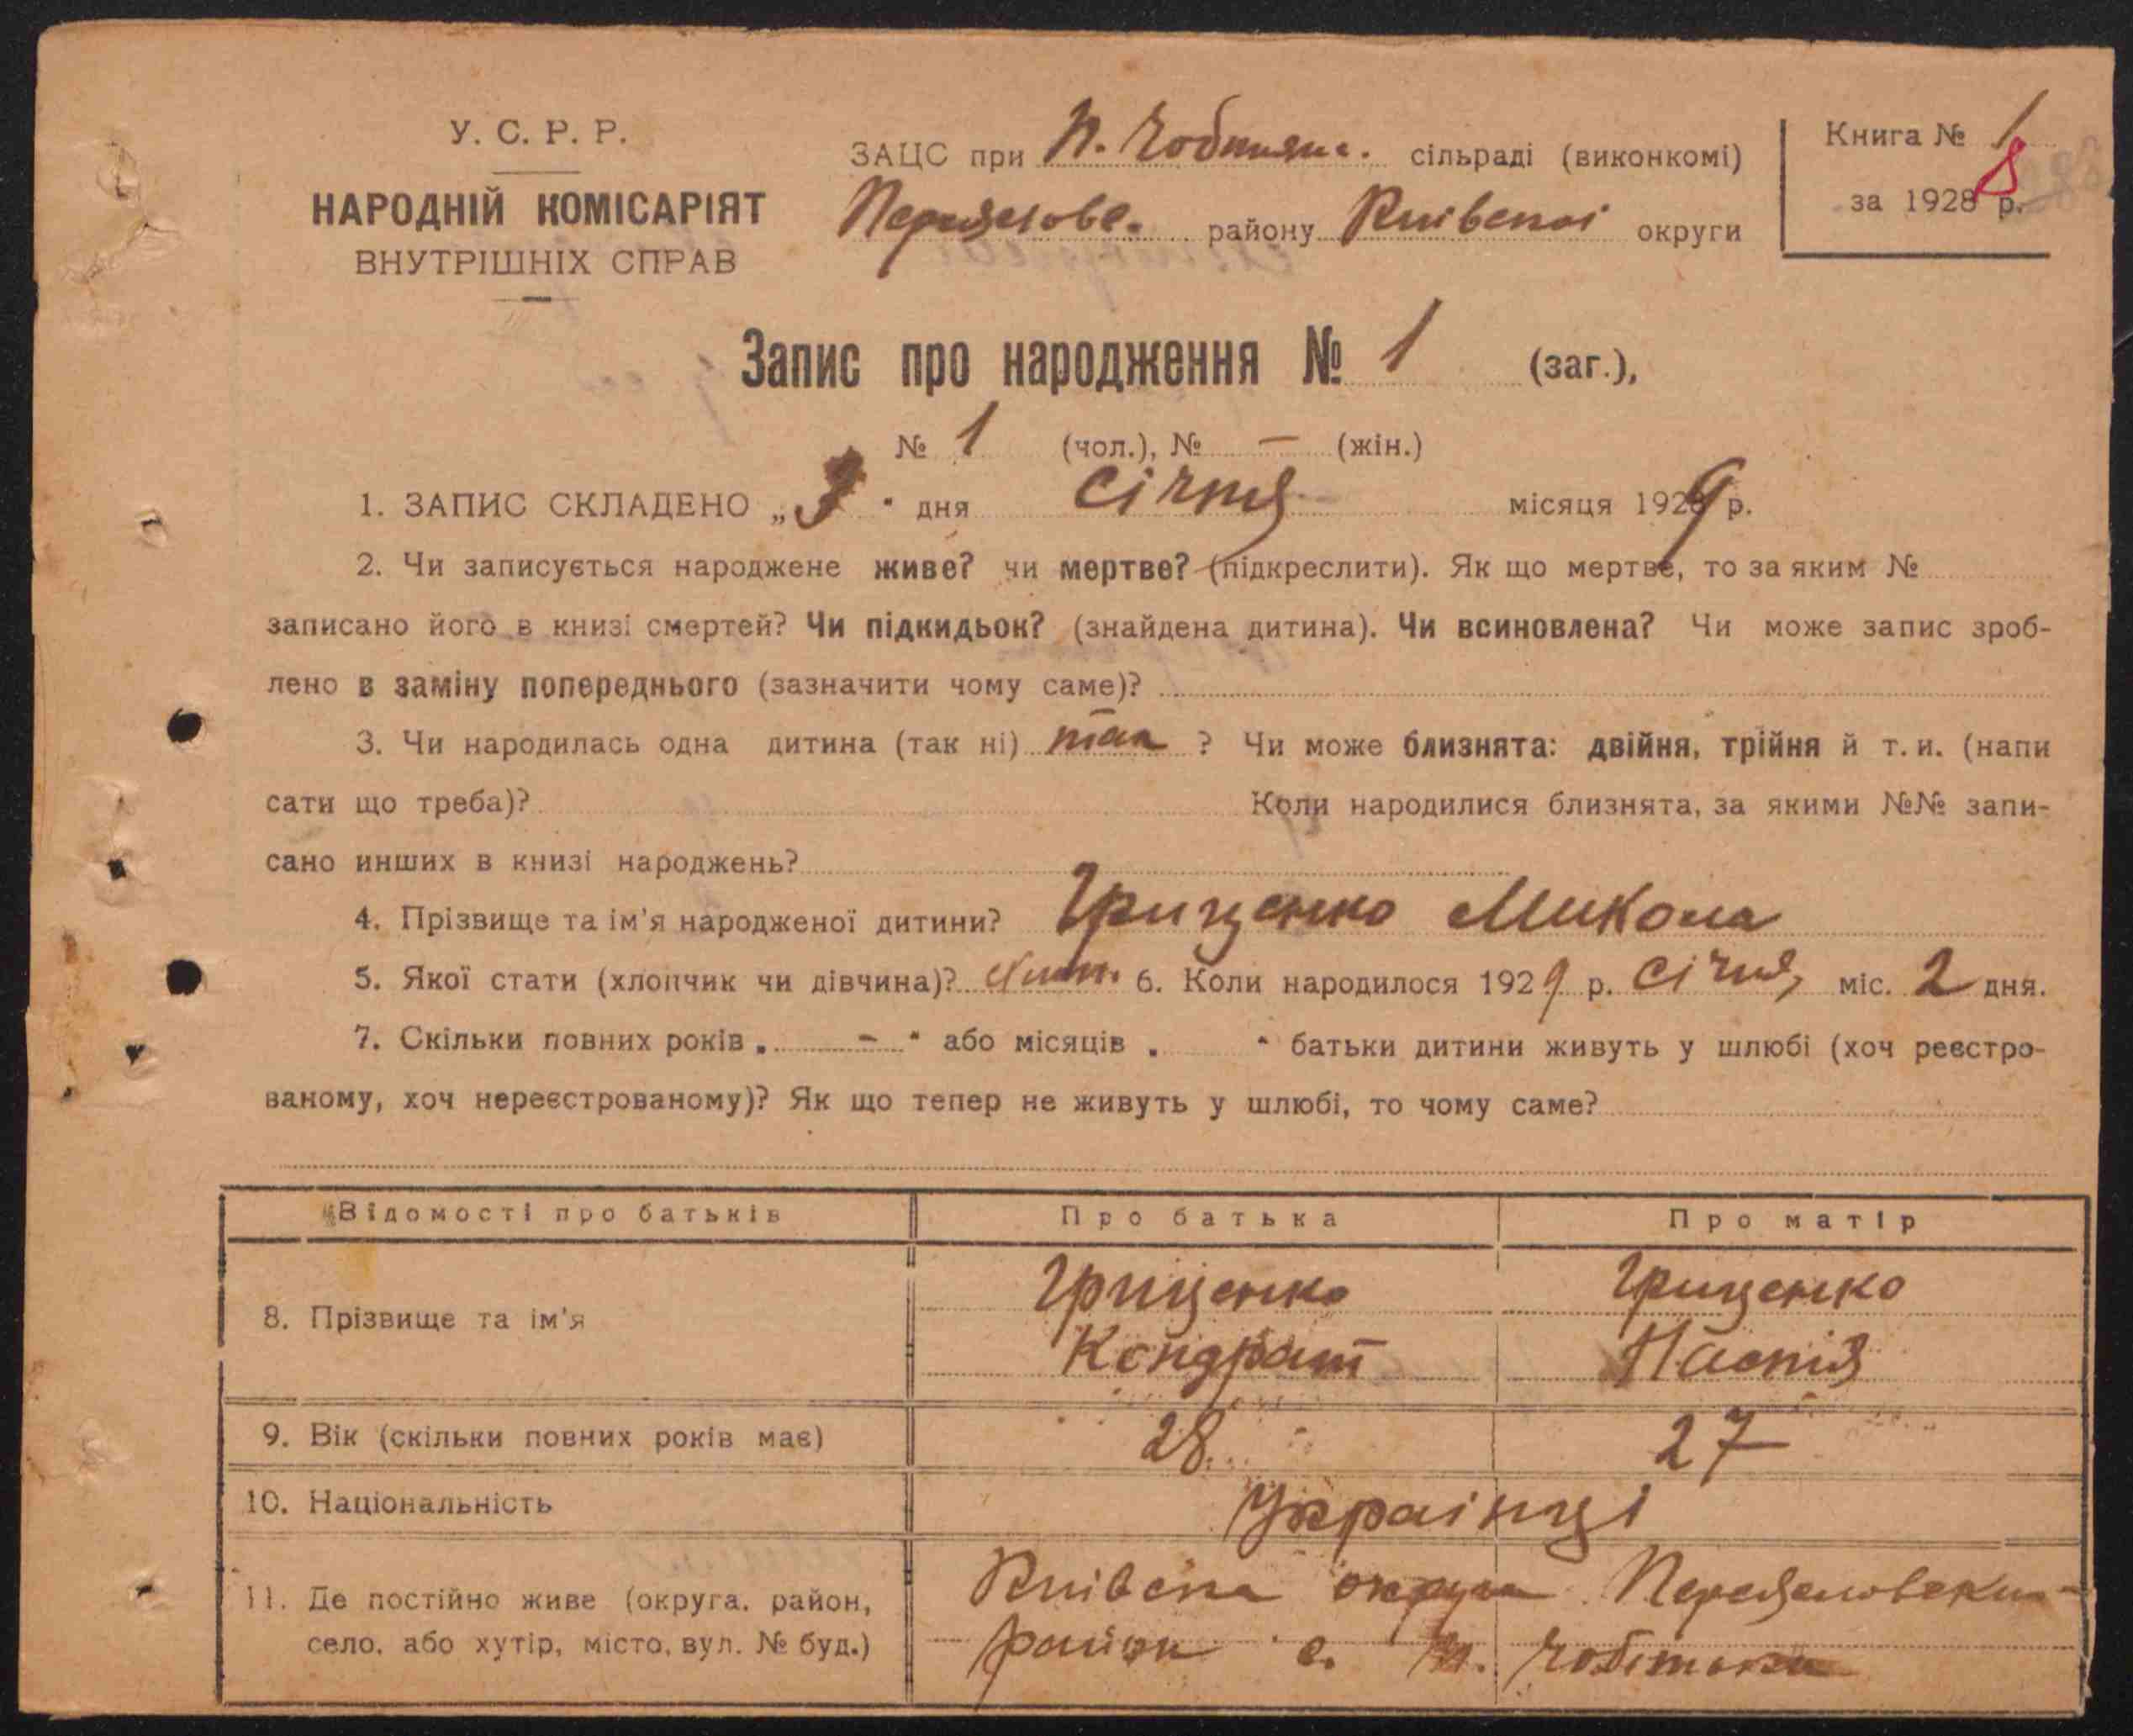 У. С. Р. Р.
НАРОДНІЙ КОМІСАРІЯТ
ВНУТРІШНІХ СПРАВ
ЗАЦС при сільраді (виконкомі)
району Київської округи
Книга № 1
за 1928 р.
Запис про народження № 1 (заг.),
№ 1 (чол.), № — (жін.)
1. ЗАПИС СКЛАДЕНО „3" дня січня місяця 1929 р.
2. Чи записується народжене живе? чи мертве? (підкреслити). Як що мертве, то за яким №
записано його в книзі смертей? Чи підкидьок? (знайдена дитина). Чи всиновлена? Чи може запис зроб-
лено в заміну попереднього (зазначити чому саме)?
3. Чи народилась одна дитина (так ні) так ? Чи може близнята: двійня, трійня й т. и. (напи
сати що треба)? Коли народилися близнята, за якими №№ запи-
сано инших в книзі народжень?
4. Прізвище та ім'я народженої дитини? Грищенко Микола
5. Якої стати (хлопчик чи дівчина)? 6. Коли народилося 1929 р. січня міс. 2 дня.
7. Скільки повних років „ — " або місяців „ " батьки дитини живуть у шлюбі (хоч реєстро-
ваному, хоч нереєстрованому)? Як що тепер не живуть у шлюбі, то чому саме?
Відомості про батьків Про батька Про матір
8. Прізвище та ім'я Грищенко Кондрат Грищенко Настія
9. Вік (скільки повних років має) 28 27
10. Національність Українці
11. Де постійно живе (округа, район,
село, або хутір, місто, вул. № буд.)
Київська округа
район с.